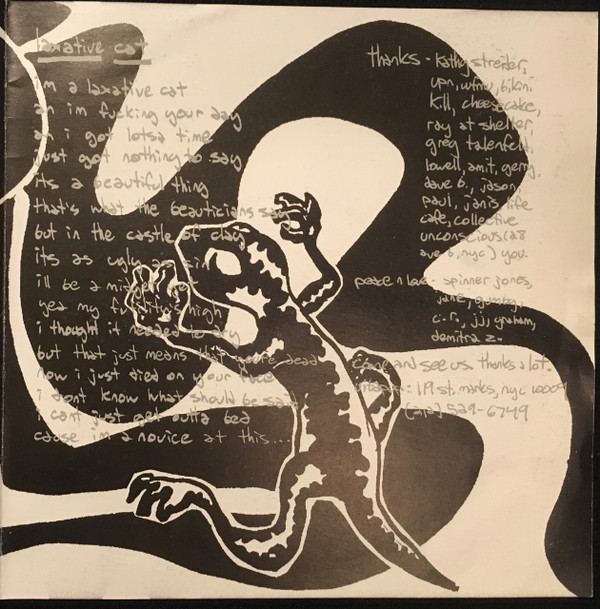 laxative cat
i'm a laxative cat
an im fucking your day
an i got lotsa time
just got nothing to say
its a beautiful thing
that's what the beauticians say
but in the castle of clay
its as ugly as sin
i'll be a
yea my high
i thought it needed to dry
but that just means that you're dead
now i just died on your face
i dont know what should be said
i cant just get outta bed
cause im a novice at this...
thanks - kathy streiter,
upn, wfmu, bikini
kill, cheesecake,
ray at shelter,
greg talenfeld,
lowell, amit, gerry,
dave b., jason,
paul, janis, life
cafe, collective
unconscious (a8
ave b, nyc) you.
peace n love - spinner jones,
jane, gumby,
c.r., jjj, graham,
demitra z.
come and see us. thanks a lot.
: 19 st. marks, nyc 10009
(212) 529-6749